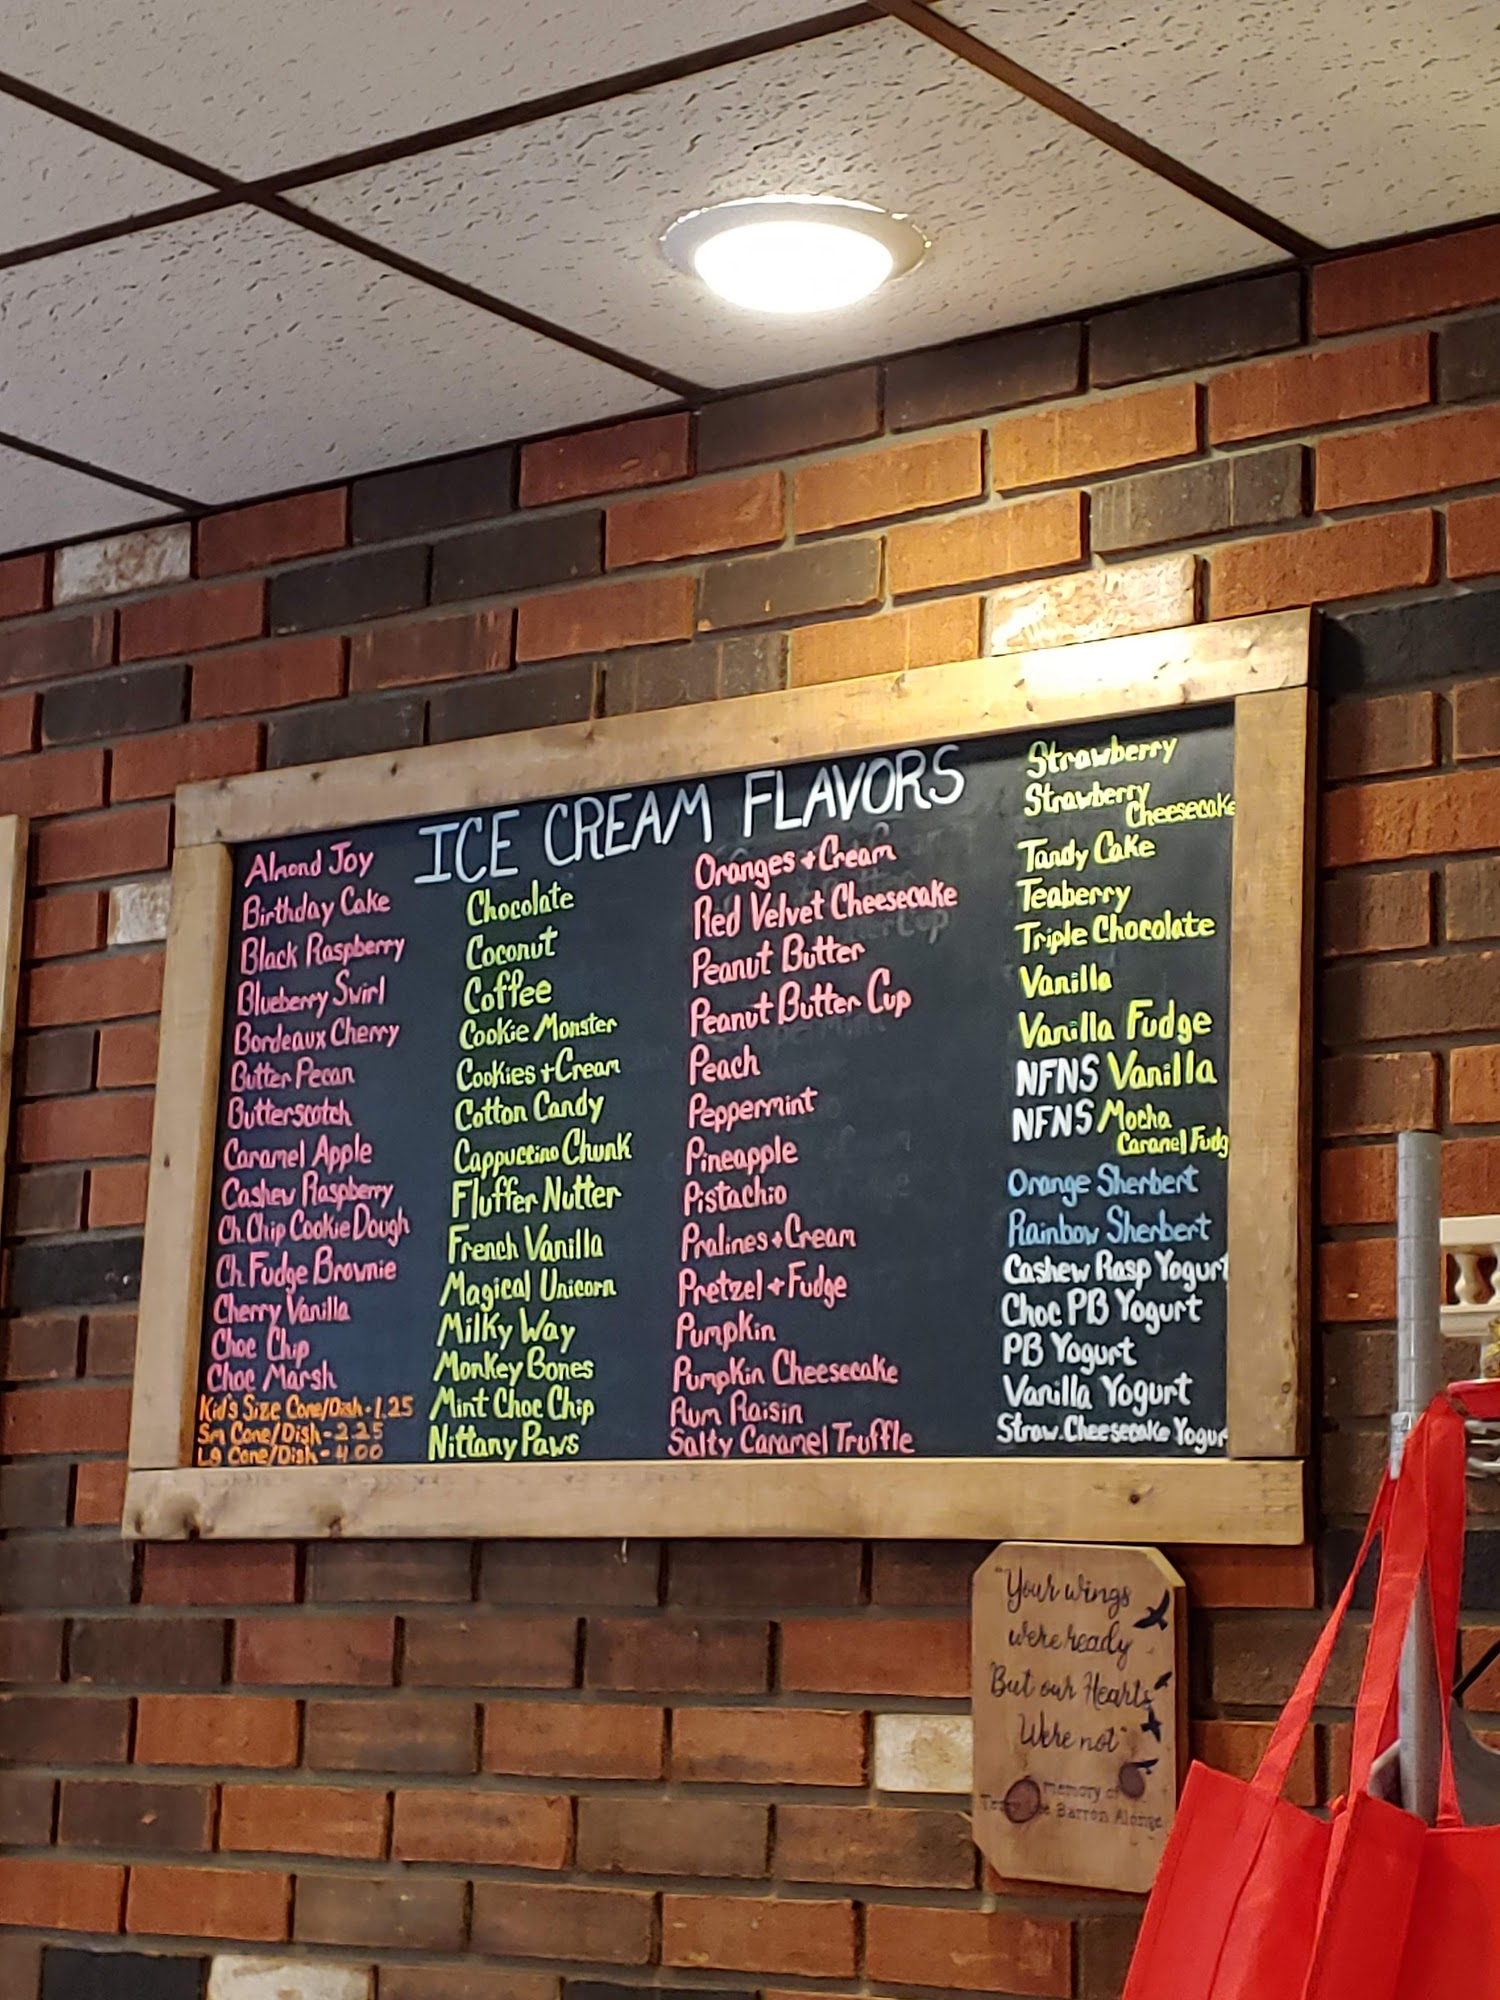 ICE CREAM FLAVORS
Almond Joy
Birthday Cake
Black Raspberry
Blueberry Swirl
Bordeaux Cherry
Butter Pecan
Butterscotch
Caramel Apple
Cashew Raspberry
Ch. Chip Cookie Dough
Ch. Fudge Brownie
Cherry Vanilla
Choc Chip
Choc Marsh
Kid's Size Cone/Dish - 1.25
Sm Cone/Dish - 2.25
Lg Cone/Dish - 4.00
Chocolate
Coconut
Coffee
Cookie Monster
Cookies + Cream
Cotton Candy
Cappuccino Chunk
Fluffer Nutter
French Vanilla
Magical Unicorn
Milky Way
Monkey Bones
Mint Choc Chip
Nittany Paws
Oranges + Cream
Red Velvet Cheesecake
Peanut Butter
Peanut Butter Cup
Peach
Peppermint
Pineapple
Pistachio
Pralines + Cream
Pretzel + Fudge
Pumpkin
Pumpkin Cheesecake
Rum Raisin
Salty Caramel Truffle
Strawberry
Strawberry
Cheesecake
Tandy Cake
Teaberry
Triple Chocolate
Vanilla
Vanilla Fudge
NFNS Vanilla
NFNS Mocha
Caramel Fudg
Orange Sherbert
Rainbow Sherbert
Cashew Rasp Yogurt
Choc PB Yogurt
PB Yogurt
Vanilla Yogurt
Straw. Cheesecake Yogur
"Your wings
were ready
But our Hearts
Were not"
Memory of
Barron Alonge